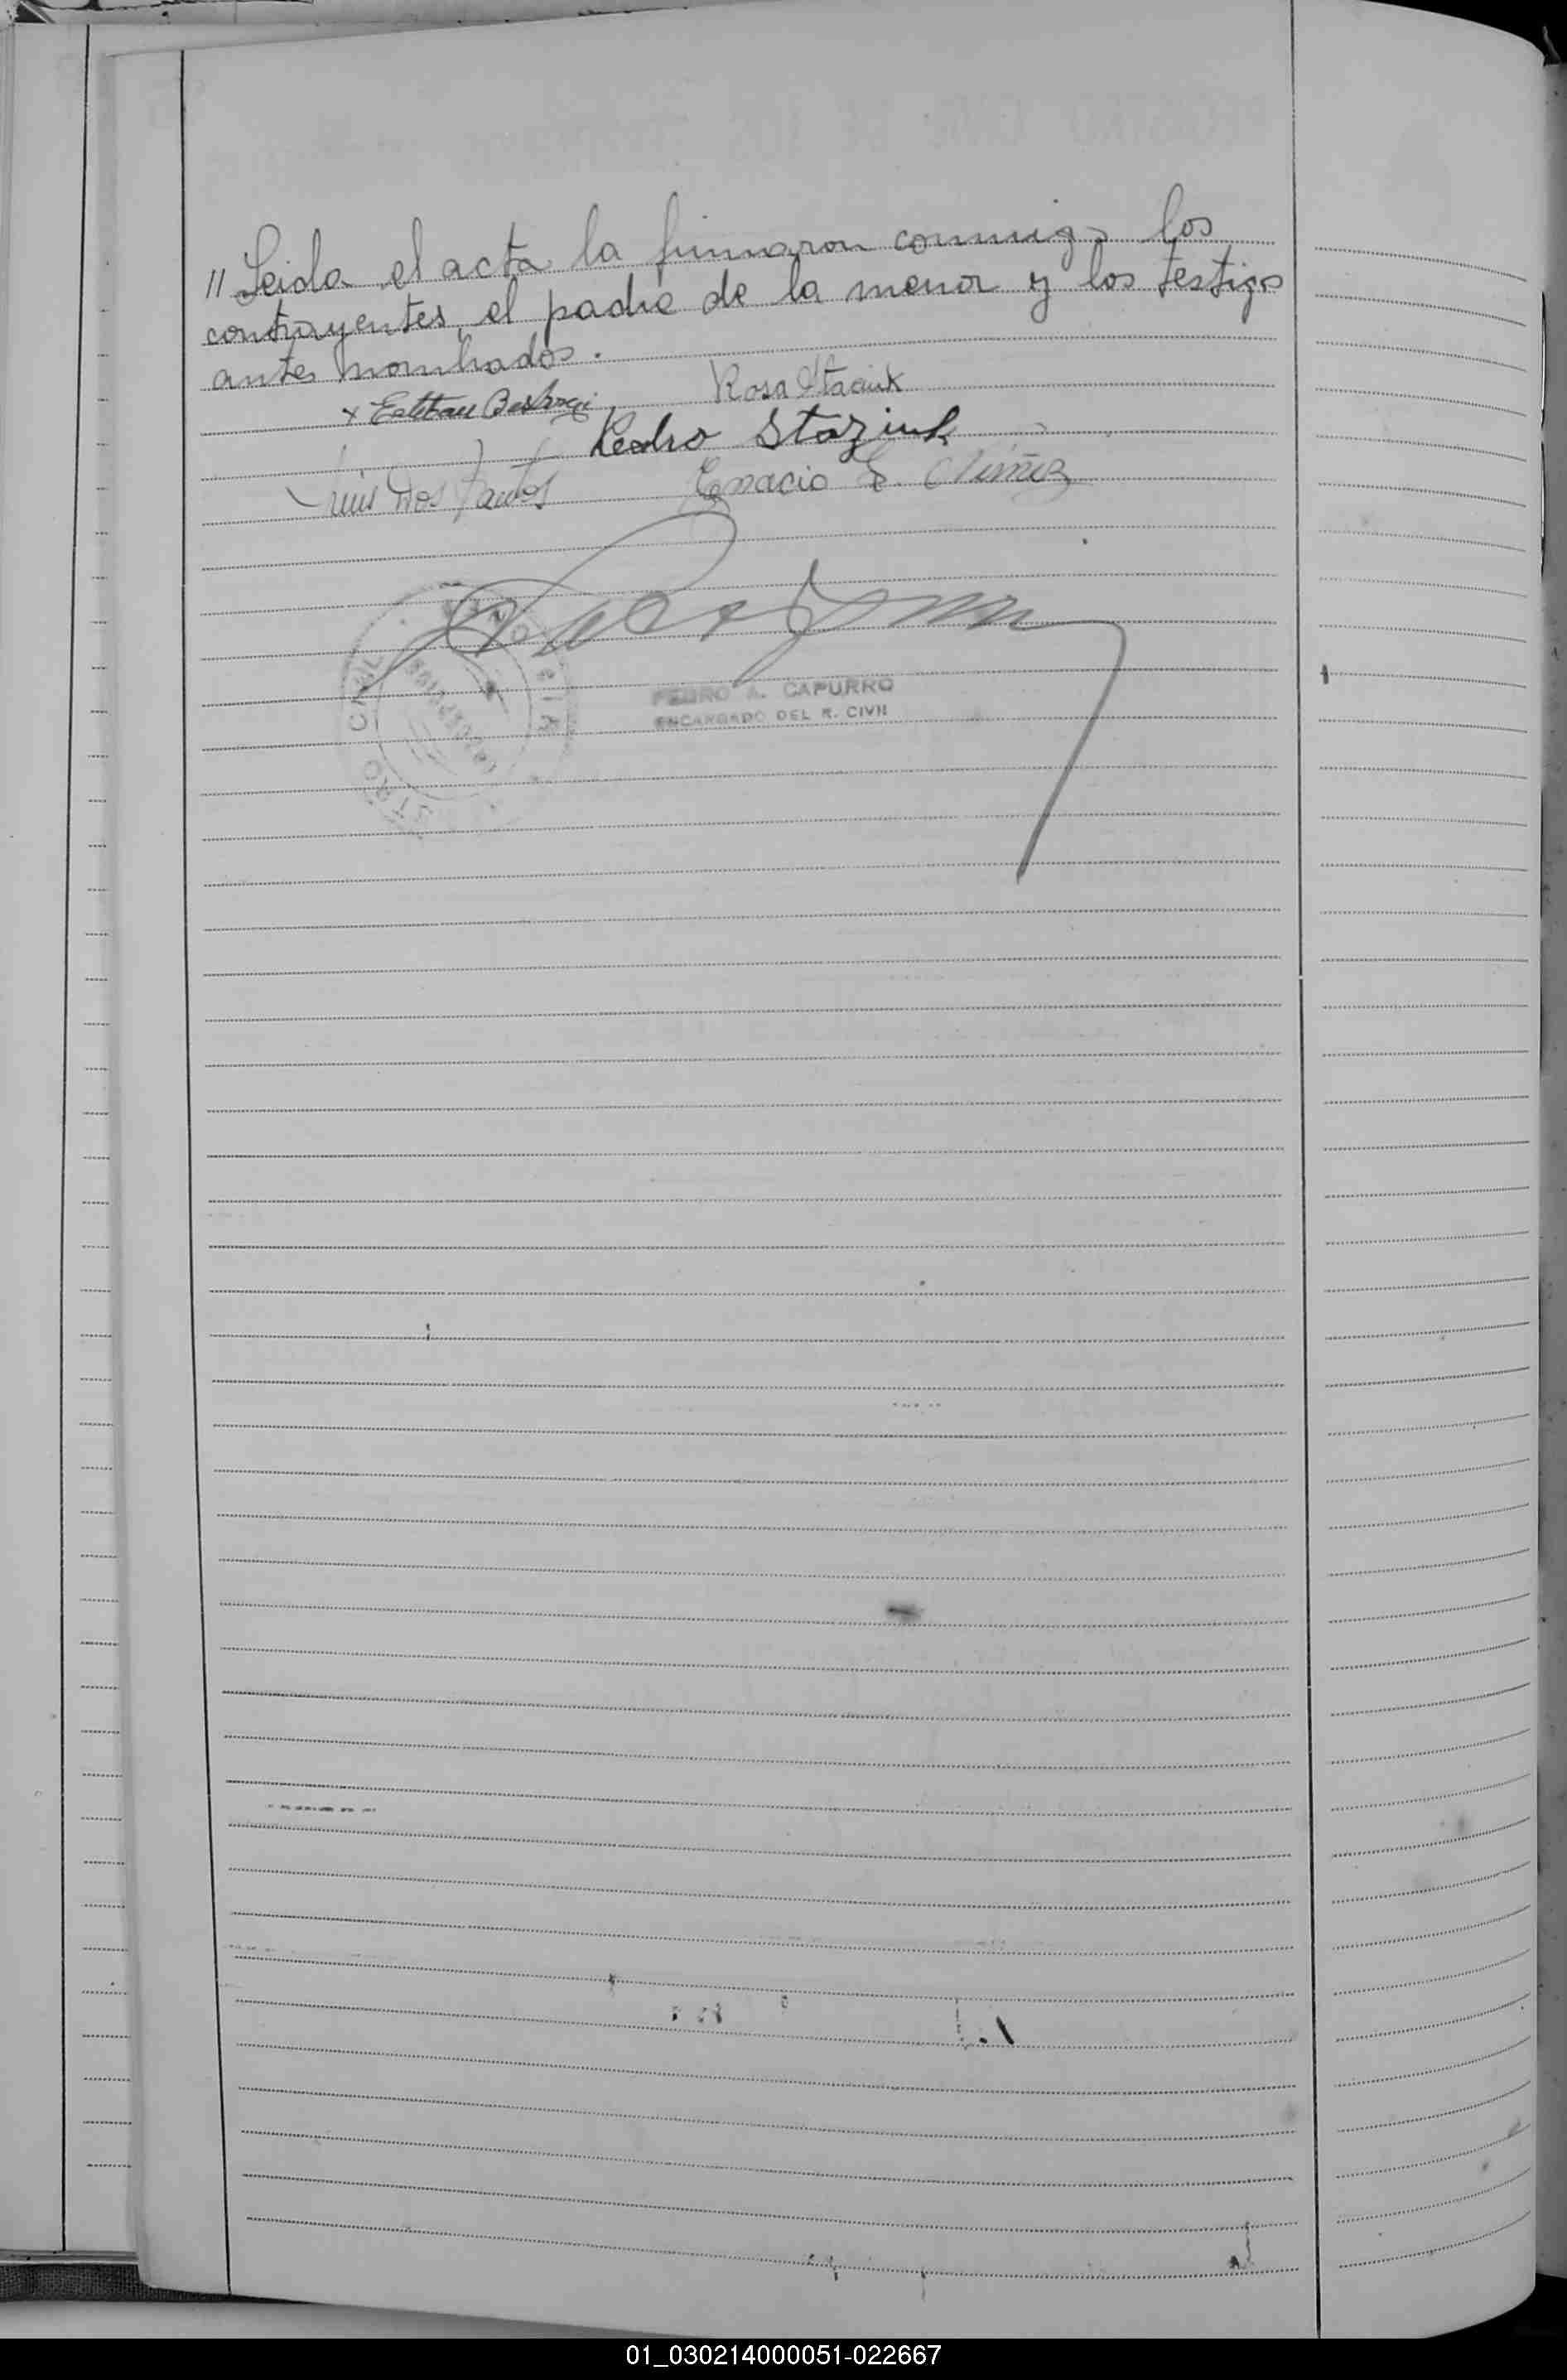 // Leida el acta la firmaron conmigo los
contrayentes, el padre de la menor y los testigos
antes nombrados.
x Esteban Rosa Staciuk
Pedro Staziuk
Luis Dos Santos Ignacio E. Nuñez
PEDRO A. CAPURRO
ENCARGADO DEL R. CIVIL
CIVIL
01_030214000051-022667